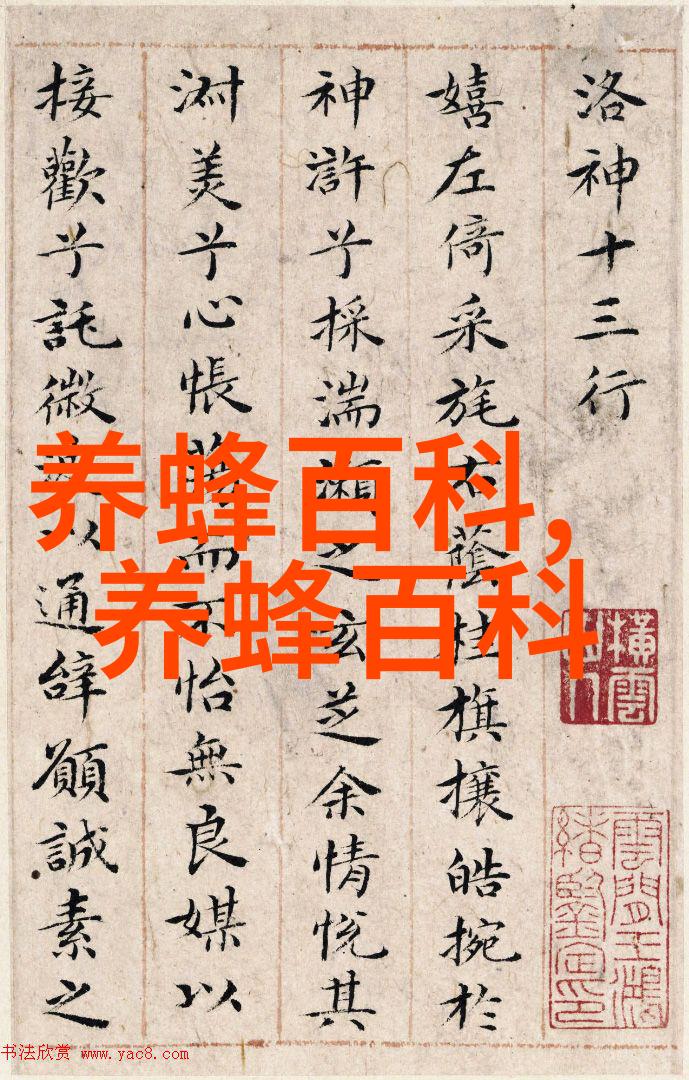 洛神十三行
嬉左倚采旄右蔭桂旗攘皓捥於
神滸兮採湍瀨之玄芝余情悅其
淑美兮心悵蕩而不怡無良媒以
接歡兮託微波以通辭願誠素之
养蜂百科,
养蜂百科
橫雲山人
雲間王鴻緒鑒定印
书法欣赏 www.yac8.com